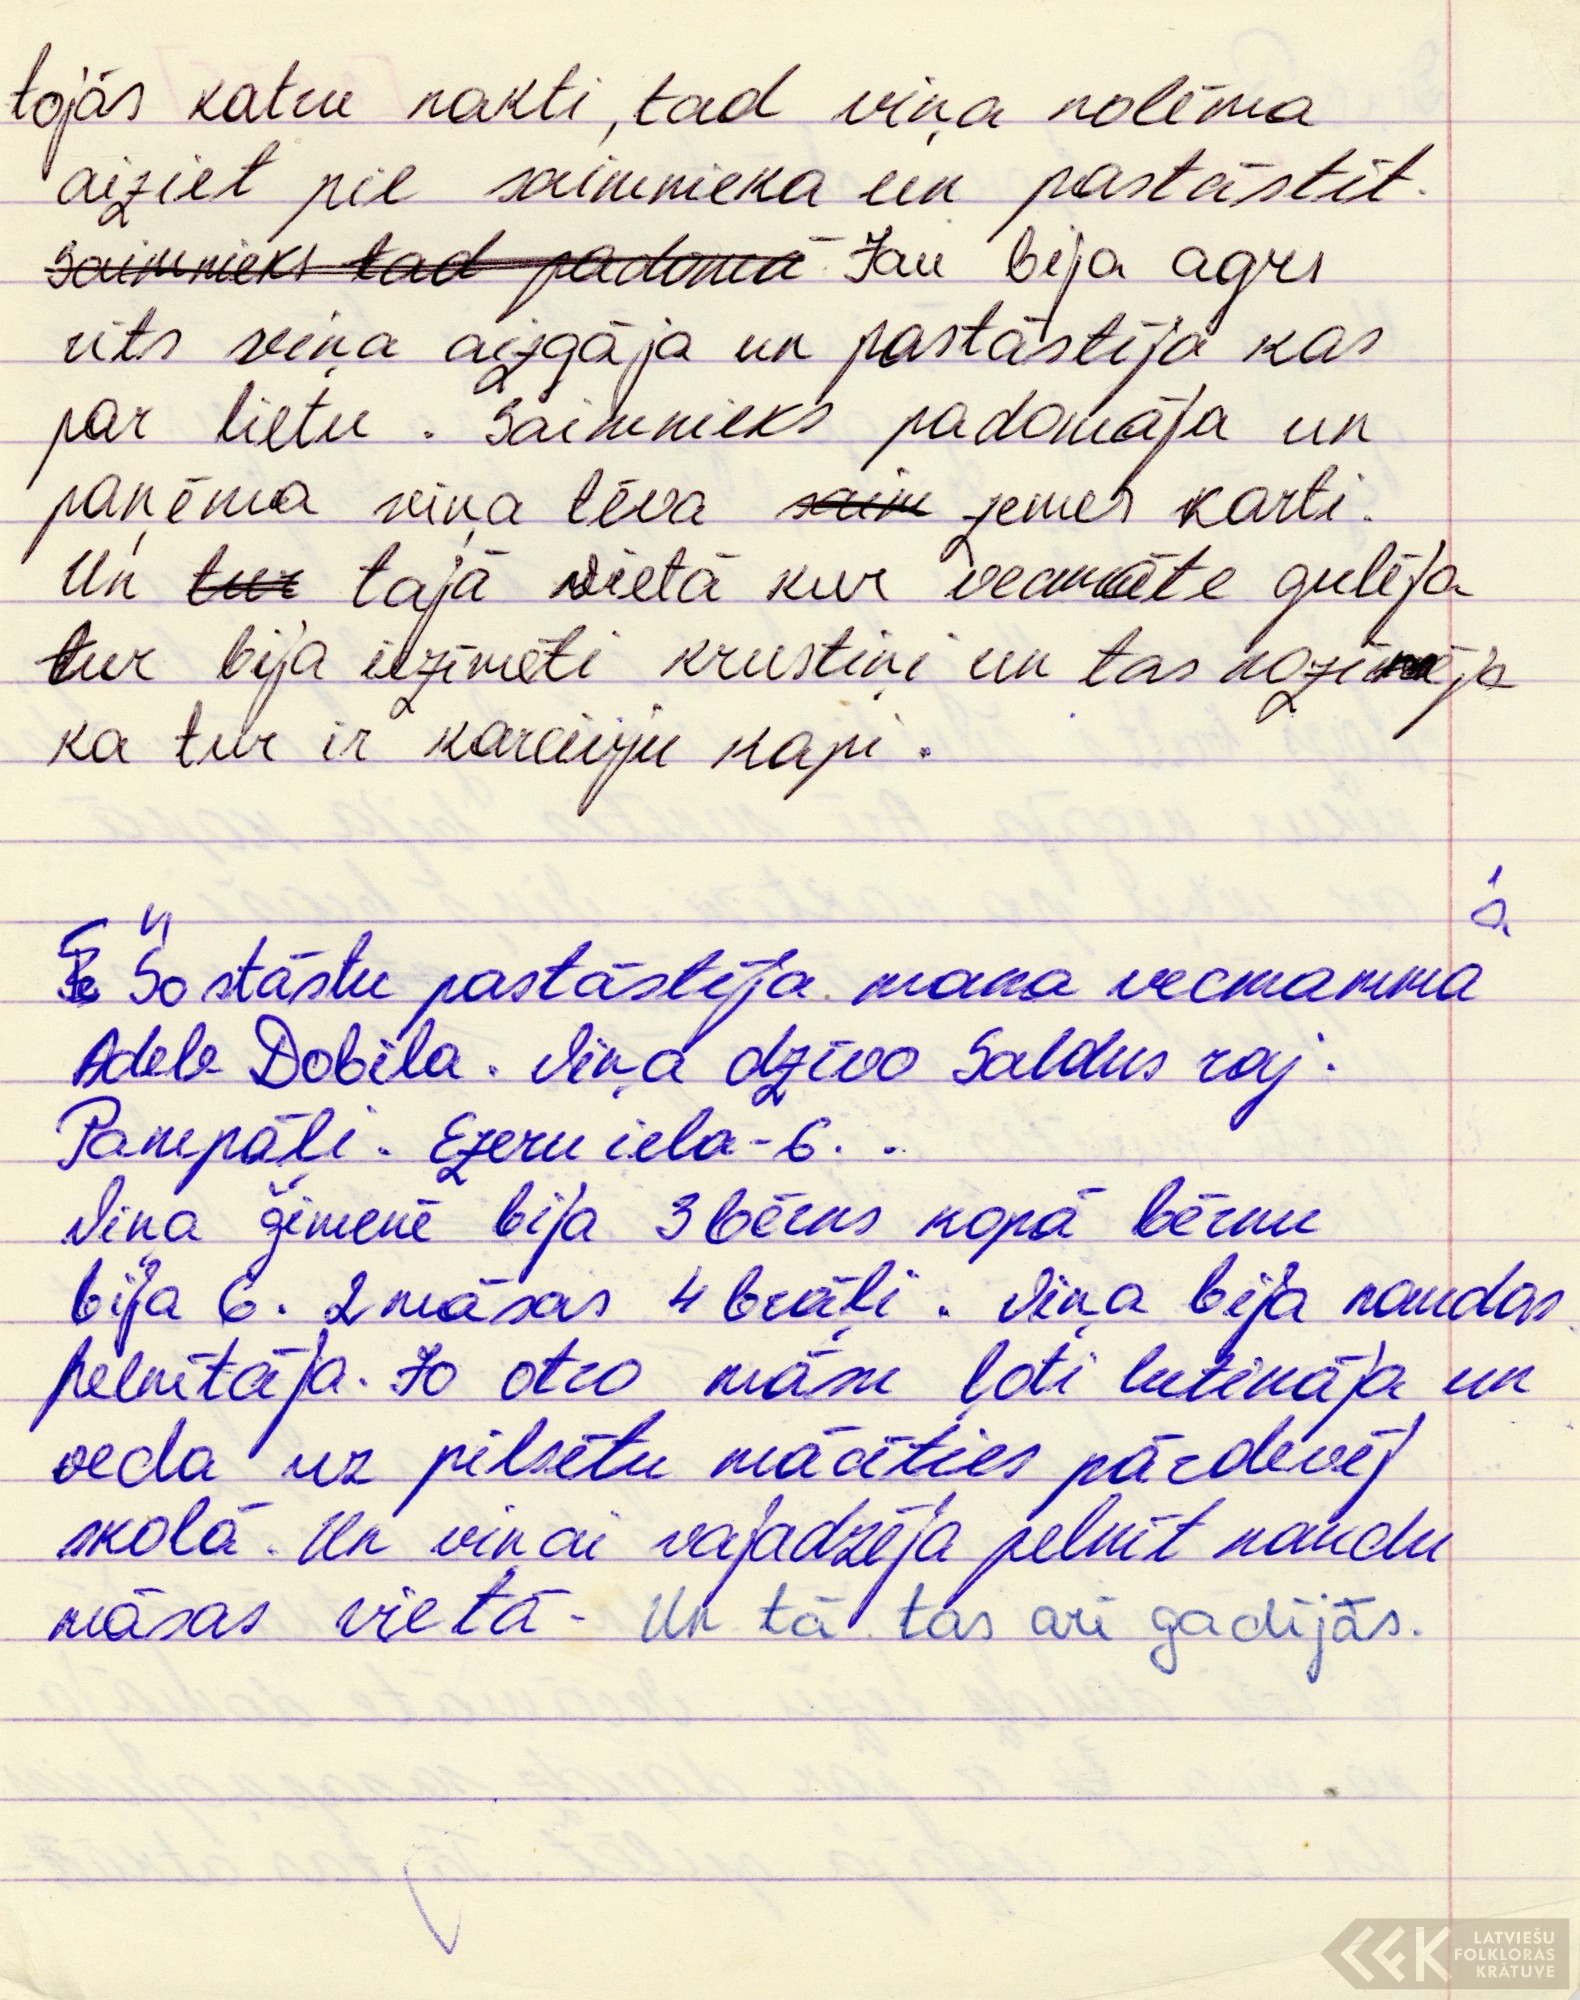 tojās katru nakti, tad viņa nolēma
aiziet pie saimnieka un pastāstīt.
Saimnieks tad padomā Jau bija agrs
rīts viņa aizgāja un pastāstīja kas
par lietu. Saimnieks padomāja un
paņēma viņa tēva saim zemes karti.
Un tur tajā vietā kur vecmāte gulēja
tur bija iezīmēti krustiņi un tas nozīmēja
ka tur ir karavīru kapi.
à
Šo stāstu pastāstīja mana vecmamma
Adele Dobila. Viņa dzīvo Saldus raj.
Pampāļi. Ezeru iela-6.
Viņa ģimenē bija 3 bērns kopā bērnu
bija 6. 2 māsas 4 brāļi. Viņa bija naudas
pelnītāja. Jo otro māsu ļoti lutināja un
veda uz pilsētu mācīties pārdevēj
skolā. Un viņai vajadzēja pelnīt naudu
māsas vietā. Un tā tas arī gadījās.
LATVIEŠU
FOLKLORAS
KRĀTUVE